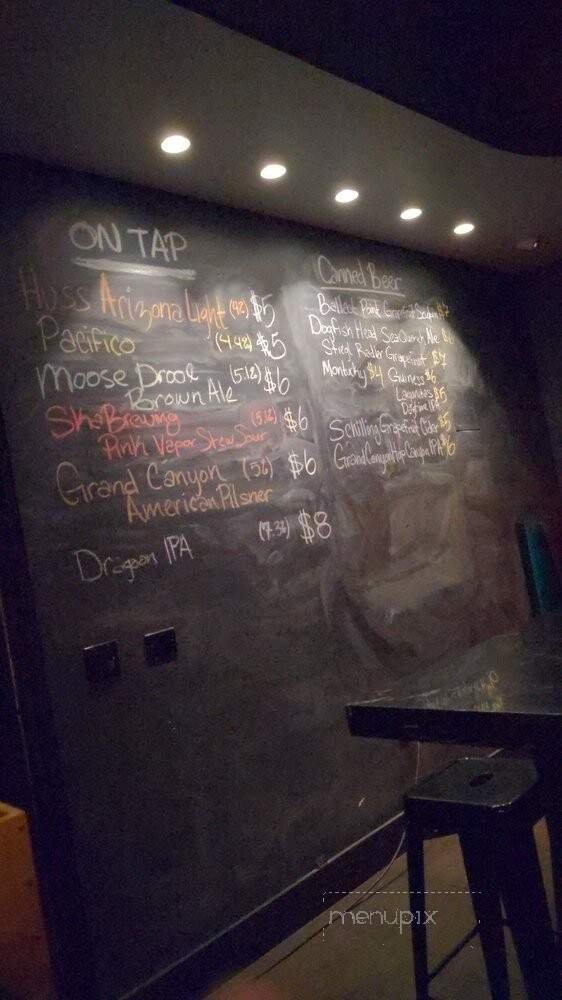 ON TAP
Huss Arizona Light (4%) $5
Pacifico (4.4%) $5
Moose Drool (5.1%) $6
Brown Ale
Ska Brewing (5.1%) $6
Pink Vapor Stew Sour
Grand Canyon (5%) $6
American Pilsner
Dragoon IPA (7.3%) $8
Canned Beer
Ballast Point Grapefruit Sculpin $7
Dogfish Head SeaQuench Ale
Stiegl Radler Grapefruit $7
Montucky $4 Guiness $6
Lagunitas $5
Daytime IPA
Schilling Grapefruit Cider $5
Grand Canyon Hop Canyon IPA $6
menupix